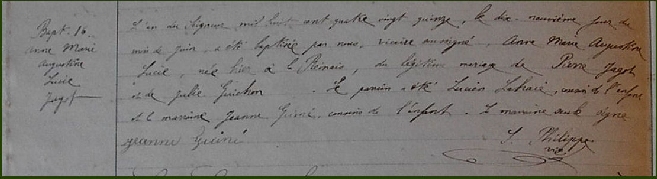 Bapt. 16
Anne Marie
Augustine
Lucie
Jagot
L'an du Seigneur mil huit cent quatre vingt quinze, le dix-neuvième jour du
mois de Juin a été baptisée par nous, vicaire soussigné, Anne Marie Augustine
Lucie, née hier à du légitime mariage de Pierre Jagot
et de Julie Guichon. Le parrain a été Lucien cousin de l'enfant
et la marraine Jeanne cousine de l'enfant. La marraine seule signe
Jeanne
S. Philippe
vic.